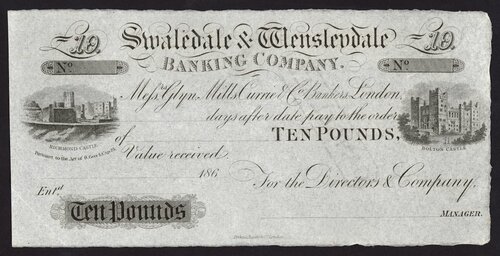 £10. Swaledale & Wensleydale £10.
No BANKING COMPANY. No
Messrs Glyn, Mills, Currie & Co Bankers, London,
days after date pay to the order
TEN POUNDS,
RICHMOND CASTLE.
BOLTON CASTLE.
of
Value received
186
For the Directors & Company,
Entd
Ten Pounds
MANAGER.